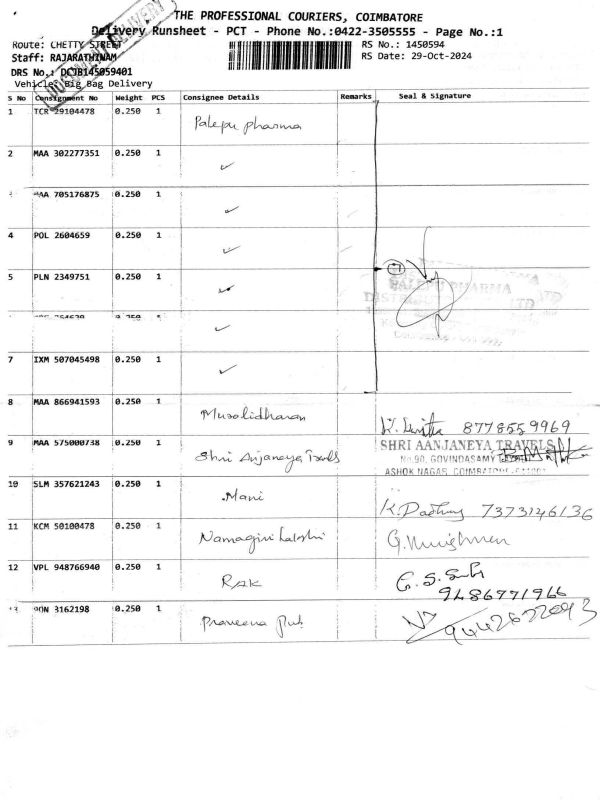 THE PROFESSIONAL COURIERS, COIMBATORE
Delivery Runsheet - PCT - Phone No.:0422-3505555 - Page No.:1
Route: CHETTY STREET
RS No.: 1450594
Staff: RAJARATHINAM
RS Date: 29-Oct-2024
DRS No.: DCJB145059401
Vehicle: Big Bag Delivery
S No Consignment No Weight PCS Consignee Details Remarks Seal & Signature
1 TCR 29104478 0.250 1 Palepu pharma
2 MAA 302277351 0.250 1 ✓
MAA 705176875 0.250 1 ✓
4 POL 2604659 0.250 1 ✓
5 PLN 2349751 0.250 1 ✓
PALEPU PHARMA
LTD
0.250 1 ✓
7 IXM 507045498 0.250 1 ✓
8 MAA 866941593 0.250 1 Muralidharan 8778559969
9 MAA 575000738 0.250 1 Shri Anjaneya Travels
SHRI AANJANEYA TRAVELS
No.90, GOVINDASAMY
ASHOK NAGAR, COIMBATORE
10 SLM 357621243 0.250 1 Mani 7373146136
11 KCM 50100478 0.250 1
12 VPL 948766940 0.250 1 RAK
9486771966
3162198 0.250 1 Praveena